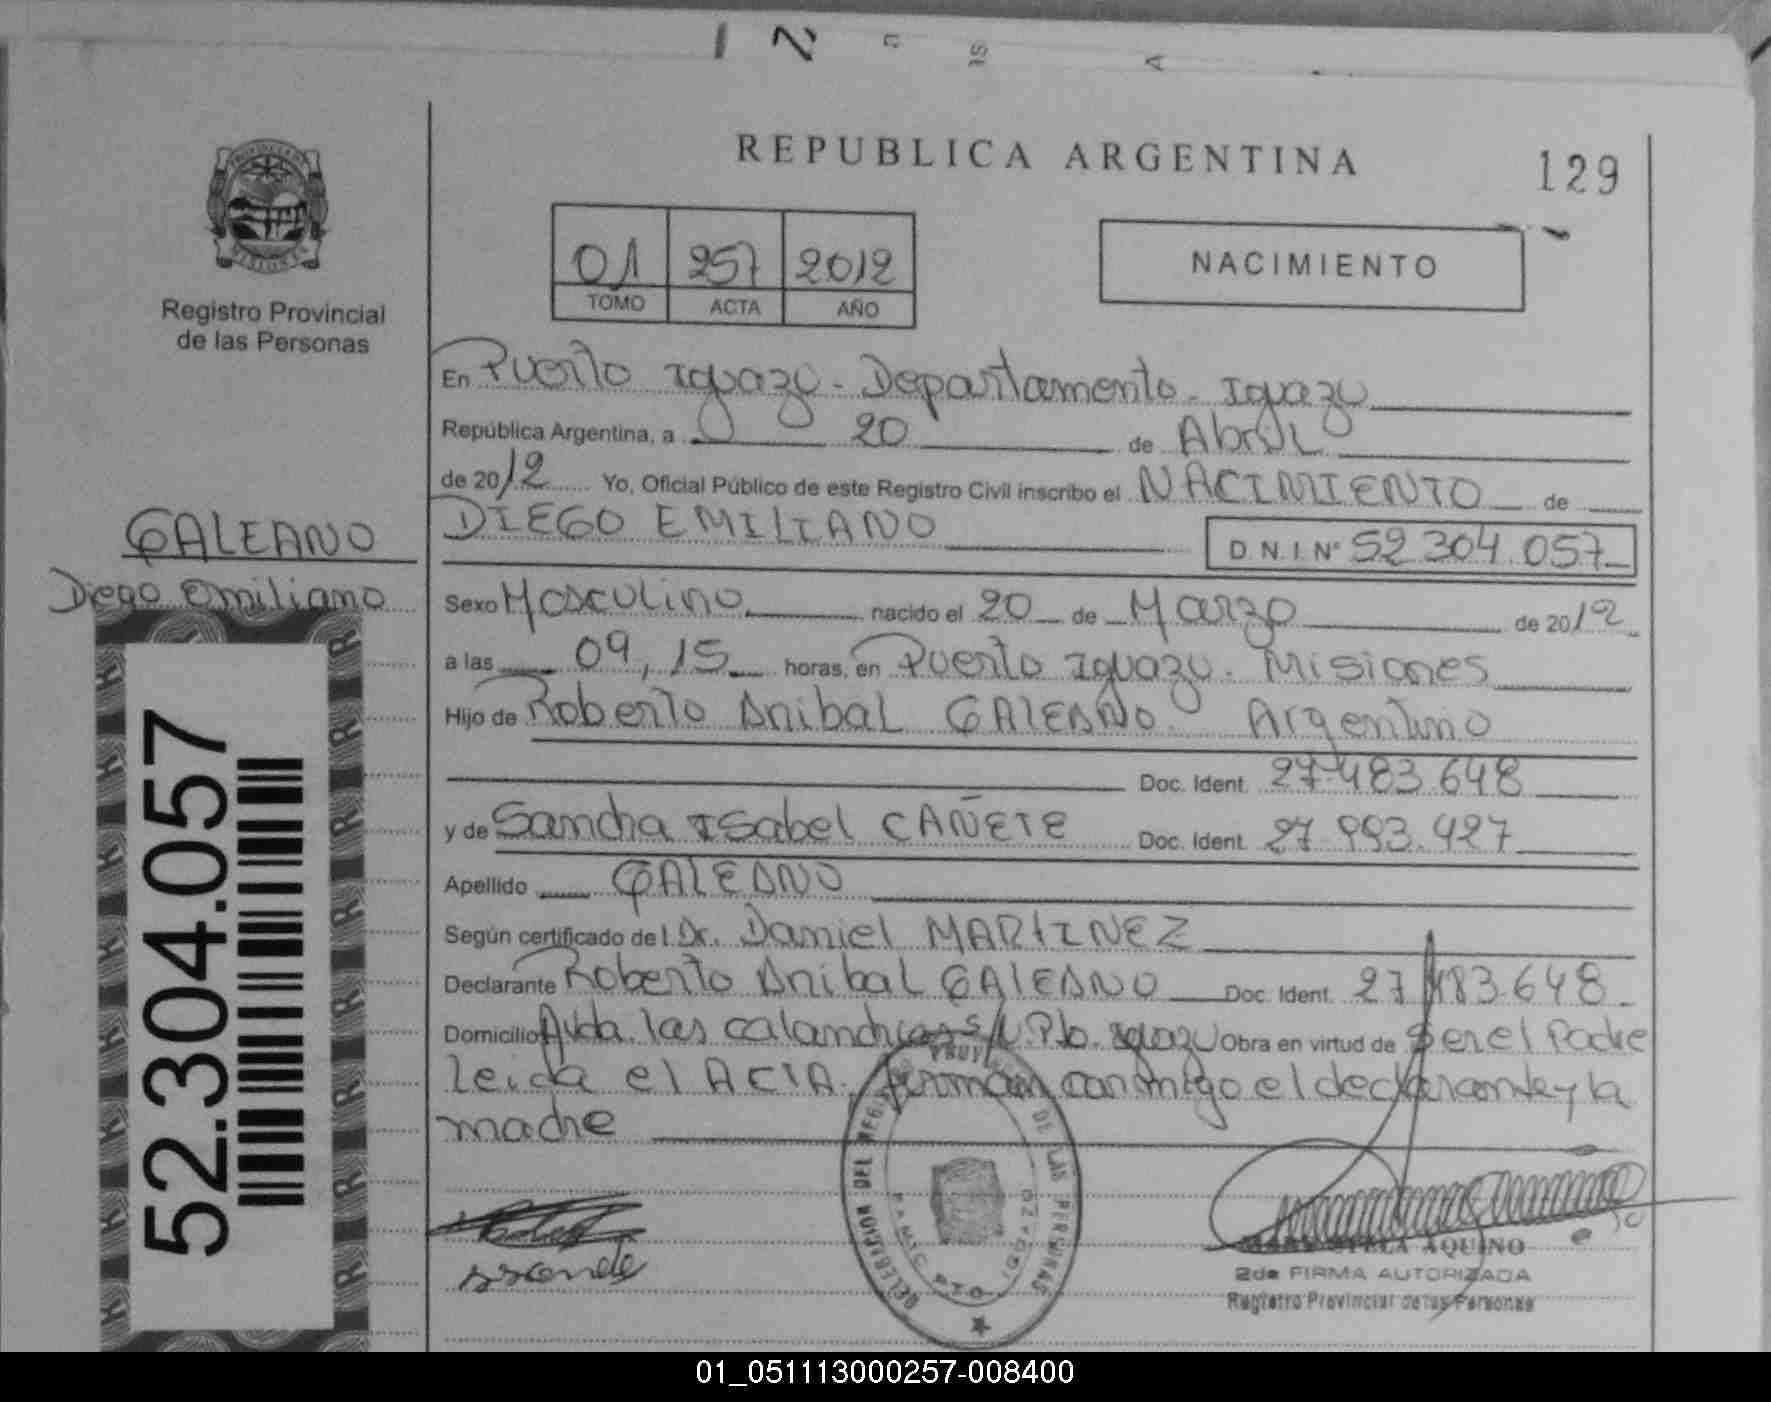 REPUBLICA ARGENTINA
129
01 257 2012
TOMO ACTA AÑO
NACIMIENTO
Registro Provincial
de las Personas
En Puerto Iguazu - Departamento - Iguazu
República Argentina, a 20 de Abril
de 2012 Yo, Oficial Público de este Registro Civil inscribo el NACIMIENTO de
GALEANO
Diego Emiliano
DIEGO EMILIANO D.N.I. N° 52.304.057
Sexo Masculino nacido el 20 de Marzo de 2012
a las 09,15 horas, en Puerto Iguazu - Misiones
Hijo de Roberto Anibal GALEANO Argentino
Doc. Ident. 27.483.648
y de Sandra Isabel CAÑETE Doc. Ident. 27.993.427
Apellido GALEANO
Según certificado del Dr. Daniel MARTINEZ
Declarante Roberto Anibal GALEANO Doc. Ident. 27.483.648
Domicilio Avda. las calandrias s/N Pto. Iguazu Obra en virtud de Ser el Padre
Leida el ACTA, firman conmigo el declarante y la
madre
52.304.057
AQUINO
2da FIRMA AUTORIZADA
Registro Provincial de las Personas
01_051113000257-008400